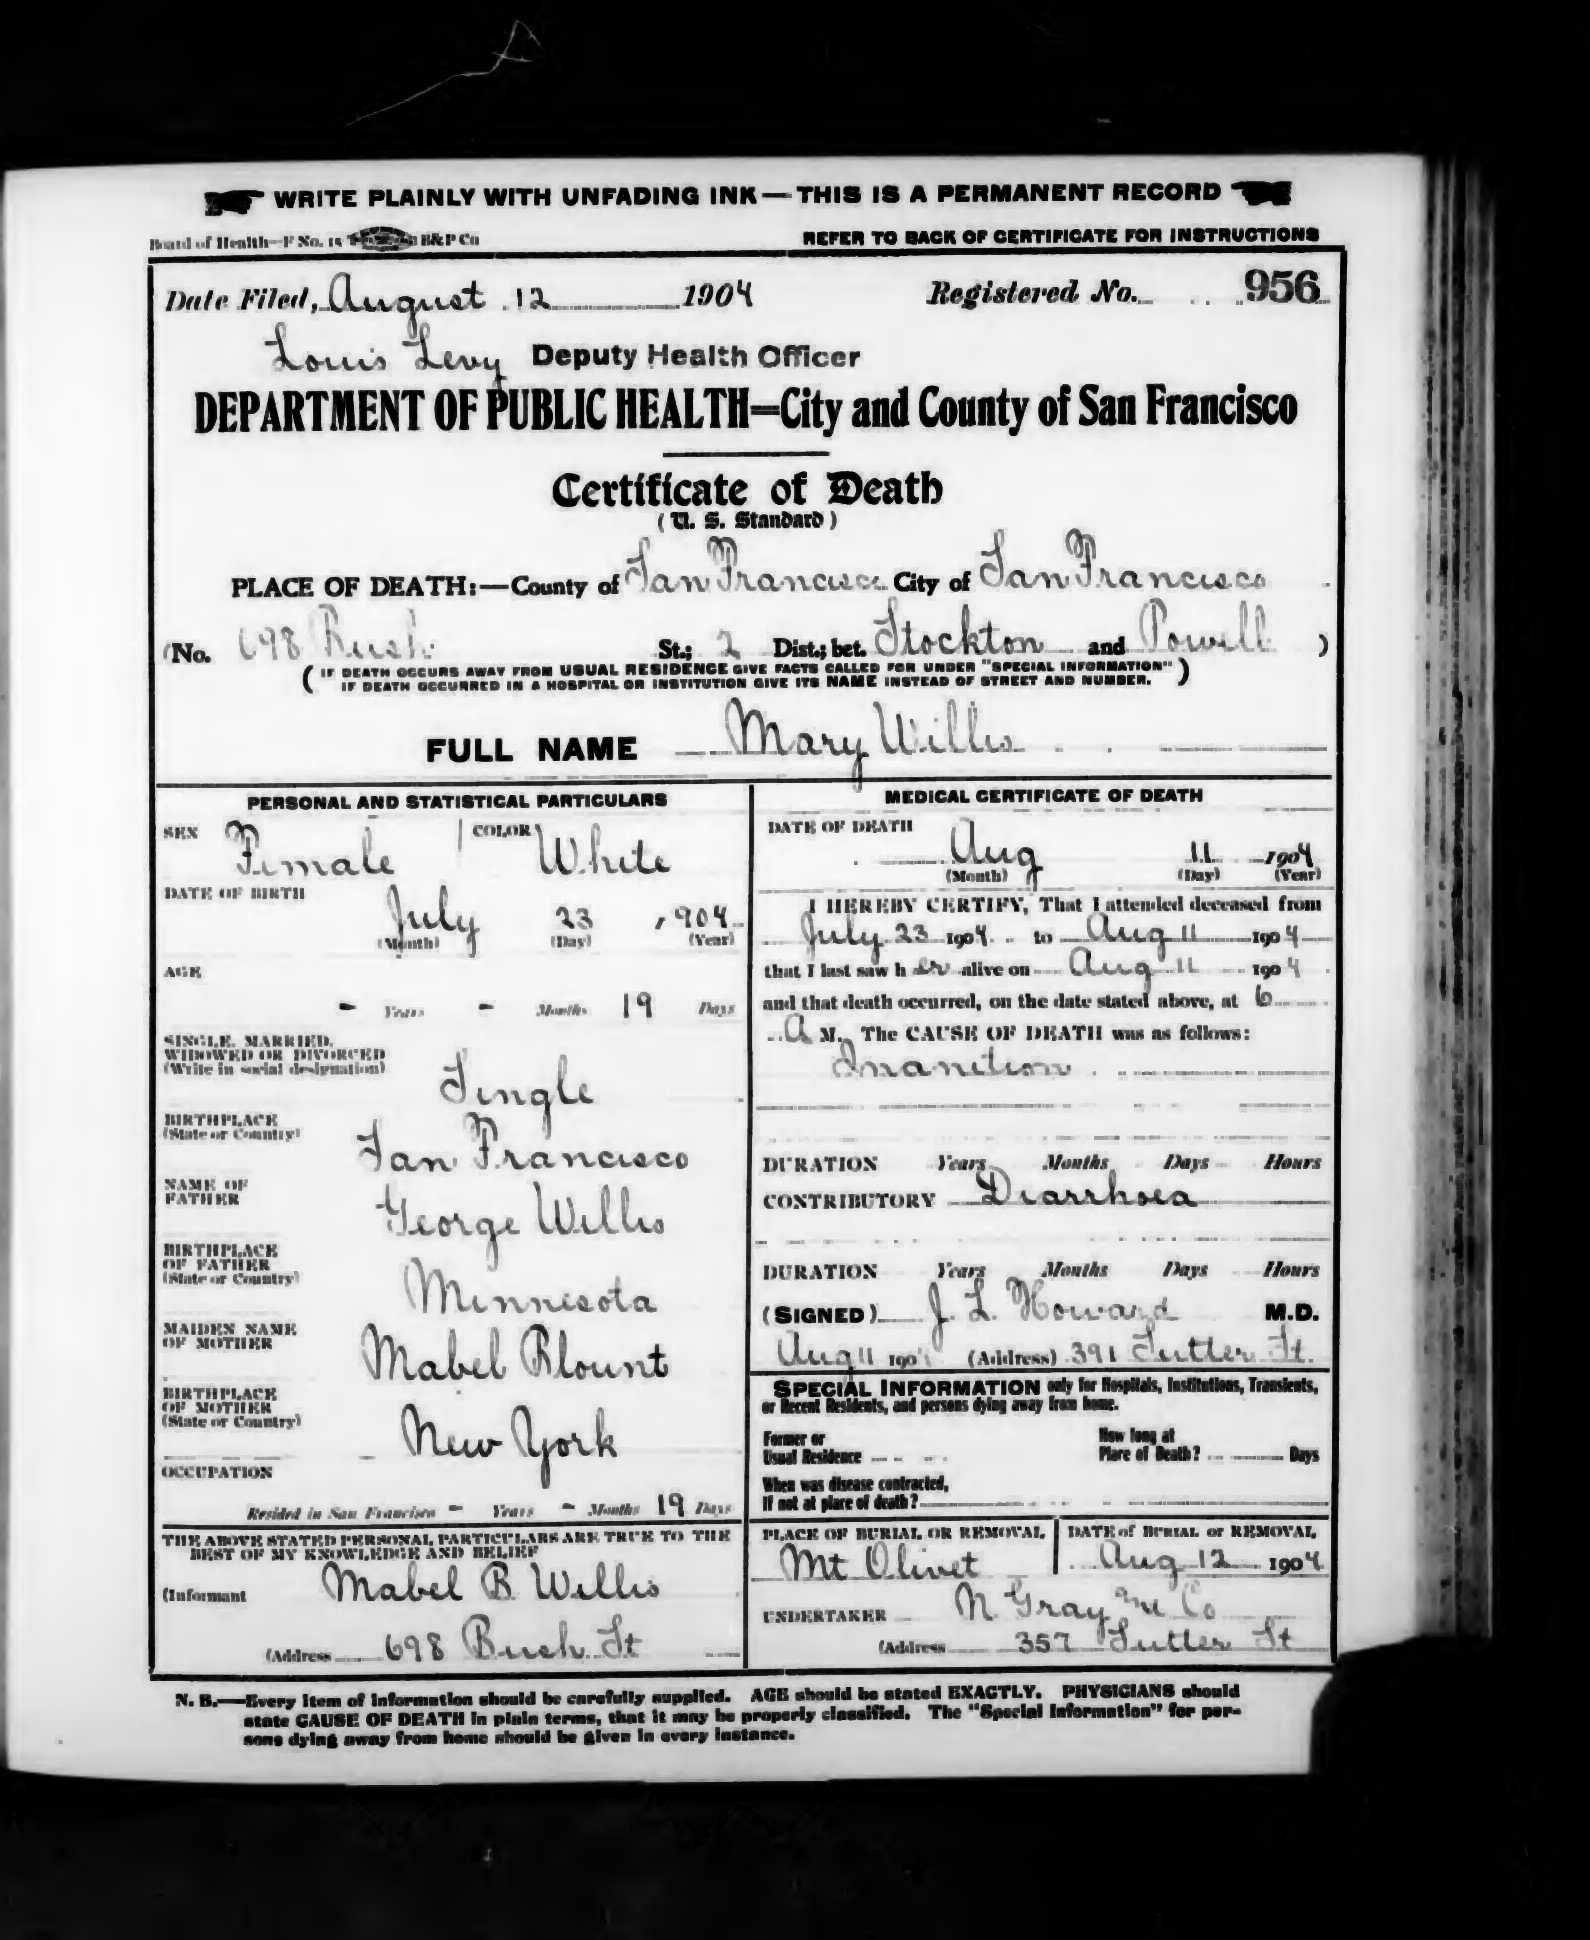 WRITE PLAINLY WITH UNFADING INK — THIS IS A PERMANENT RECORD
Board of Health—F No. 15 B&P Co
REFER TO BACK OF CERTIFICATE FOR INSTRUCTIONS
Date Filed, August 12 1904 Registered No. 956
Louis Levy Deputy Health Officer
DEPARTMENT OF PUBLIC HEALTH=City and County of San Francisco
Certificate of Death
(U. S. Standard)
PLACE OF DEATH:—County of San Francisco City of San Francisco
(No. 698 Bush St.; 2 Dist.; bet. Stockton and Powell )
( IF DEATH OCCURS AWAY FROM USUAL RESIDENCE GIVE FACTS CALLED FOR UNDER "SPECIAL INFORMATION" )
( IF DEATH OCCURRED IN A HOSPITAL OR INSTITUTION GIVE ITS NAME INSTEAD OF STREET AND NUMBER. )
FULL NAME Mary Willis
PERSONAL AND STATISTICAL PARTICULARS
SEX Female COLOR White
DATE OF BIRTH
July 23 1904
(Month) (Day) (Year)
AGE
- Years - Months 19 Days
SINGLE, MARRIED,
WIDOWED OR DIVORCED
(Write in social designation)
Single
BIRTHPLACE
(State or Country)
San Francisco
NAME OF
FATHER
George Willis
BIRTHPLACE
OF FATHER
(State or Country)
Minnesota
MAIDEN NAME
OF MOTHER
Mabel Blount
BIRTHPLACE
OF MOTHER
(State or Country)
New York
OCCUPATION
Resided in San Francisco - Years - Months 19 Days
THE ABOVE STATED PERSONAL PARTICULARS ARE TRUE TO THE
BEST OF MY KNOWLEDGE AND BELIEF
(Informant Mabel B. Willis
(Address 698 Bush St
MEDICAL CERTIFICATE OF DEATH
DATE OF DEATH
Aug 11 1904
(Month) (Day) (Year)
I HEREBY CERTIFY, That I attended deceased from
July 23 1904 to Aug 11 1904
that I last saw h er alive on Aug 11 1904
and that death occurred, on the date stated above, at 6
A M. The CAUSE OF DEATH was as follows:
Inanition
DURATION Years Months Days Hours
CONTRIBUTORY Diarrhoea
DURATION Years Months Days Hours
(SIGNED) J. L. Howard M.D.
Aug 11 1904 (Address) 391 Sutter St.
SPECIAL INFORMATION only for Hospitals, Institutions, Transients,
or Recent Residents, and persons dying away from home.
Former or
Usual Residence
How long at
Place of Death? Days
When was disease contracted,
If not at place of death?
PLACE OF BURIAL OR REMOVAL
Mt Olivet
DATE of BURIAL or REMOVAL
Aug 12 1904
UNDERTAKER N. Gray and Co
(Address 357 Sutter St
N. B.—Every item of information should be carefully supplied. AGE should be stated EXACTLY. PHYSICIANS should
state CAUSE OF DEATH in plain terms, that it may be properly classified. The "Special Information" for per-
sons dying away from home should be given in every instance.